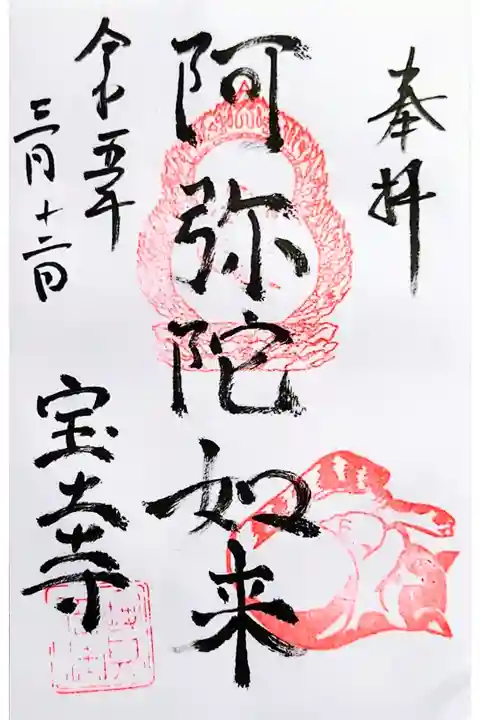 奉拝
阿弥陀如来
令和五年
三月十二日
宝大寺